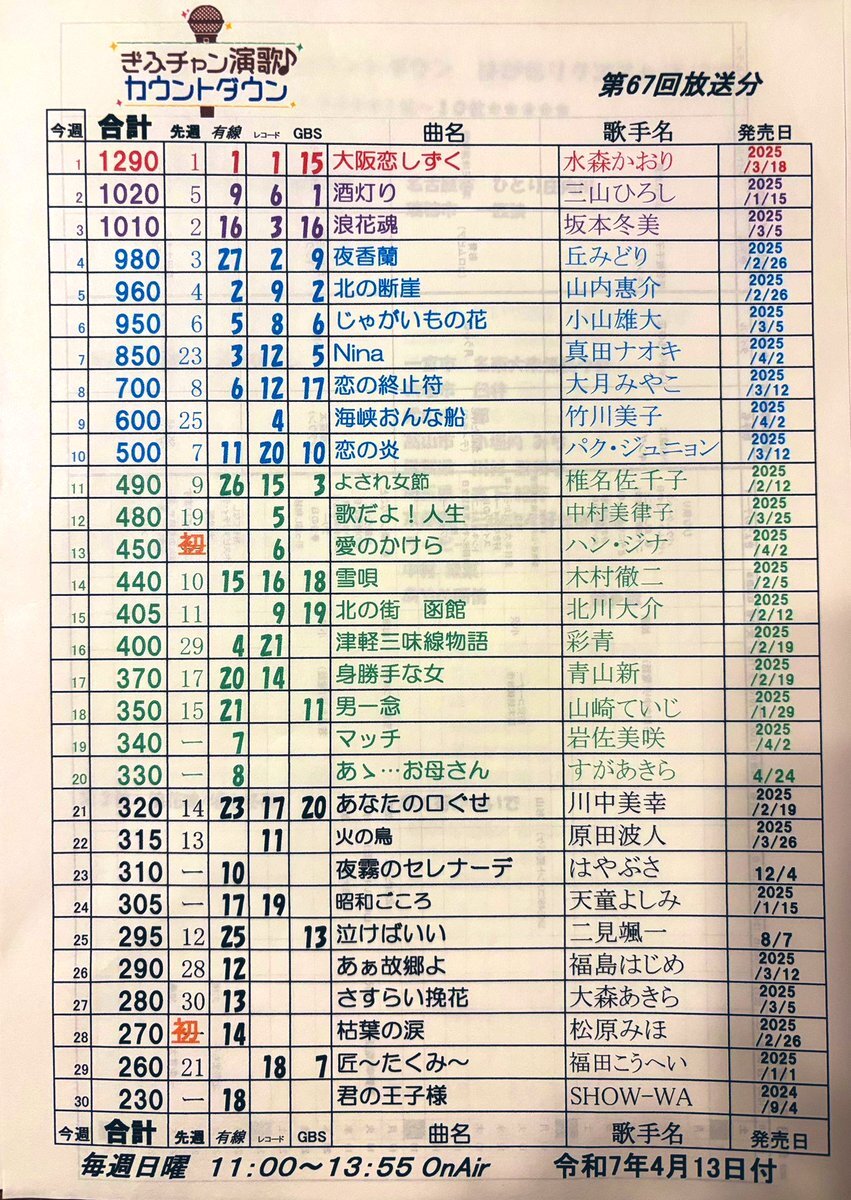 ぎふチャン演歌♪
カウントダウン
第67回放送分
今週 合計 先週 有線 レコード GBS 曲名 歌手名 発売日
1 1290 1 1 1 15 大阪恋しずく 水森かおり 2025/3/18
2 1020 5 9 6 1 酒灯り 三山ひろし 2025/1/15
3 1010 2 16 3 16 浪花魂 坂本冬美 2025/3/5
4 980 3 27 2 9 夜香蘭 丘みどり 2025/2/26
5 960 4 2 9 2 北の断崖 山内惠介 2025/2/26
6 950 6 5 8 6 じゃがいもの花 小山雄大 2025/3/5
7 850 23 3 12 5 Nina 真田ナオキ 2025/4/2
8 700 8 6 12 17 恋の終止符 大月みやこ 2025/3/12
9 600 25 4 海峡おんな船 竹川美子 2025/4/2
10 500 7 11 20 10 恋の炎 パク・ジュニョン 2025/3/12
11 490 9 26 15 3 よされ女節 椎名佐千子 2025/2/12
12 480 19 5 歌だよ！人生 中村美律子 2025/3/25
13 450 初 6 愛のかけら ハン・ジナ 2025/4/2
14 440 10 15 16 18 雪唄 木村徹二 2025/2/5
15 405 11 9 19 北の街 函館 北川大介 2025/2/12
16 400 29 4 21 津軽三味線物語 彩青 2025/2/19
17 370 17 20 14 身勝手な女 青山新 2025/2/19
18 350 15 21 11 男一念 山崎ていじ 2025/1/29
19 340 ー 7 マッチ 岩佐美咲 2025/4/2
20 330 ー 8 あゝ…お母さん すがあきら 4/24
21 320 14 23 17 20 あなたの口ぐせ 川中美幸 2025/2/19
22 315 13 11 火の鳥 原田波人 2025/3/26
23 310 ー 10 夜霧のセレナーデ はやぶさ 12/4
24 305 ー 17 19 昭和ごころ 天童よしみ 2025/1/15
25 295 12 25 13 泣けばいい 二見颯一 8/7
26 290 28 12 あぁ故郷よ 福島はじめ 2025/3/12
27 280 30 13 さすらい挽花 大森あきら 2025/3/5
28 270 初 14 枯葉の涙 松原みほ 2025/2/26
29 260 21 18 7 匠～たくみ～ 福田こうへい 2025/1/1
30 230 ー 18 君の王子様 SHOW-WA 2024/9/4
今週 合計 先週 有線 レコード GBS 曲名 歌手名 発売日
毎週日曜 11:00～13:55 OnAir 令和7年4月13日付